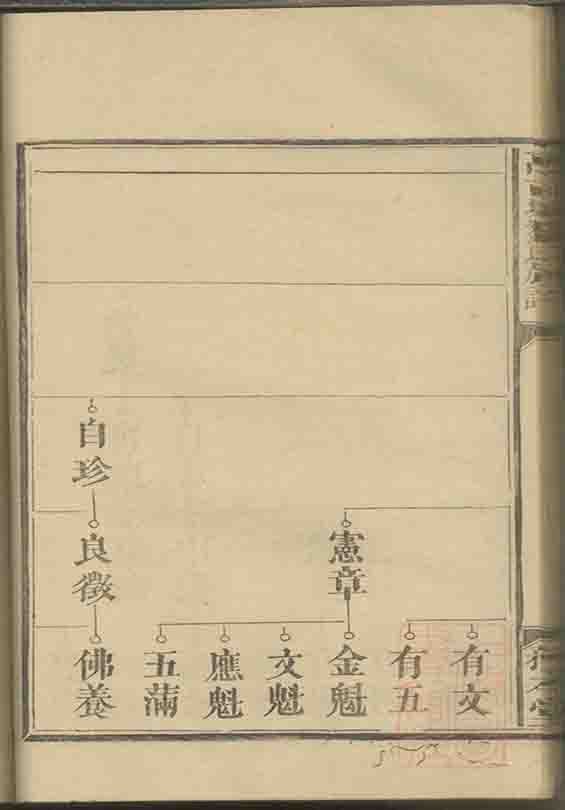 有文
有五
憲章
金魁
文魁
應魁
五滿
自珍
良徵
佛養